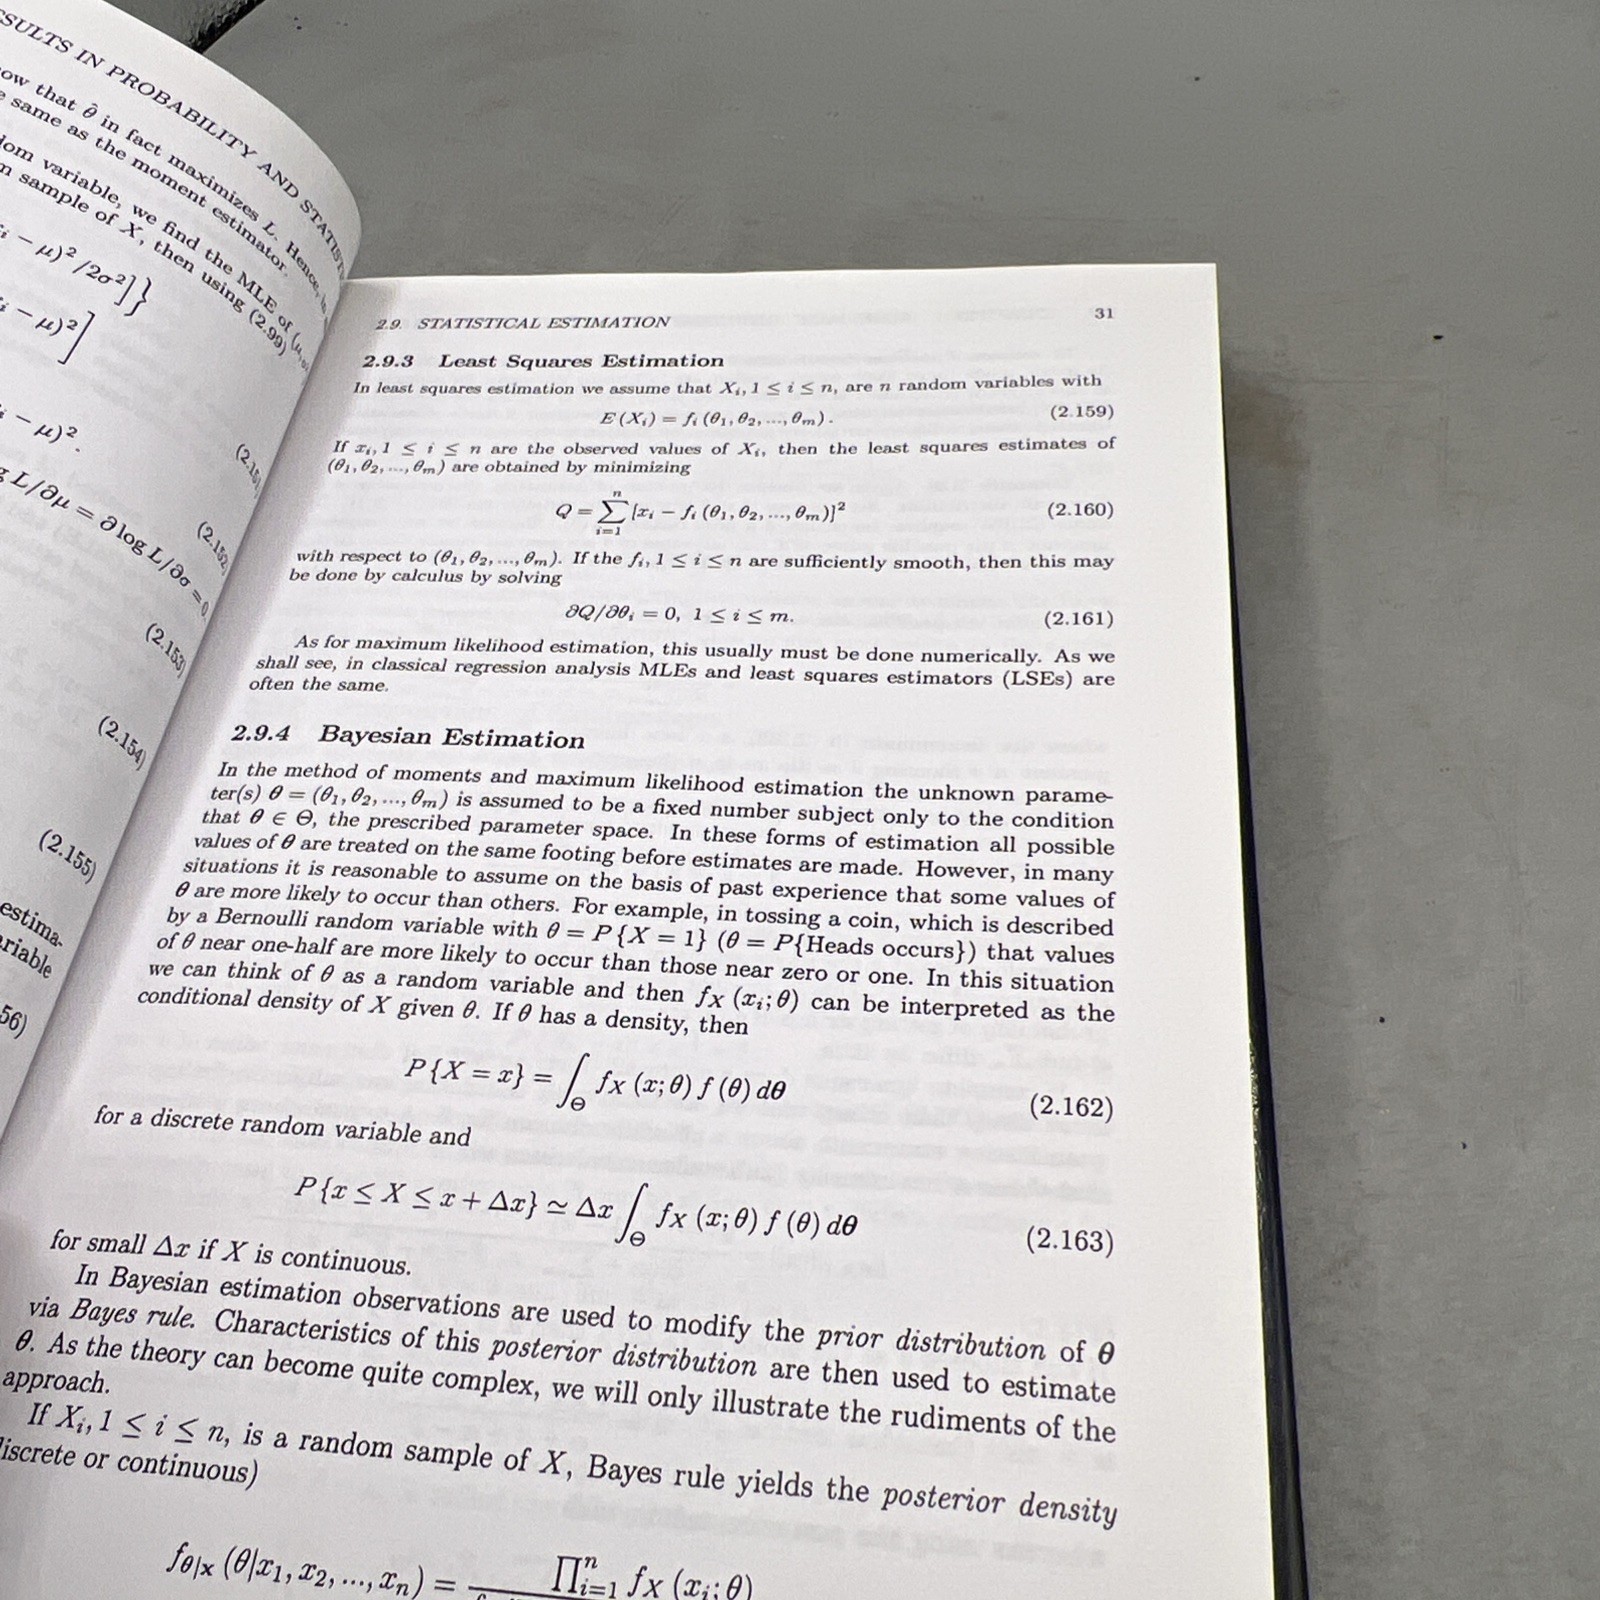 SULTS IN PROBABILITY AND STATIST
ow that θ̂ in fact maximizes L. Hence, in
e same as the moment estimator.
dom variable, we find the MLE of (μ,
m sample of X, then using (2.99)
i − μ)² /2σ²]}
i − μ)²]
i − μ)².
(2.151)
(2.152)
g L/∂μ = ∂ log L/∂σ = 0
(2.153)
(2.154)
(2.155)
estima-
ariable
56)
2.9. STATISTICAL ESTIMATION 31
2.9.3 Least Squares Estimation
In least squares estimation we assume that Xᵢ, 1 ≤ i ≤ n, are n random variables with
E (Xᵢ) = fᵢ (θ₁, θ₂, ..., θₘ) . (2.159)
If xᵢ, 1 ≤ i ≤ n are the observed values of Xᵢ, then the least squares estimates of
(θ₁, θ₂, ..., θₘ) are obtained by minimizing
Q = ∑ᵢ₌₁ⁿ [xᵢ − fᵢ (θ₁, θ₂, ..., θₘ)]² (2.160)
with respect to (θ₁, θ₂, ..., θₘ). If the fᵢ, 1 ≤ i ≤ n are sufficiently smooth, then this may
be done by calculus by solving
∂Q/∂θᵢ = 0, 1 ≤ i ≤ m. (2.161)
As for maximum likelihood estimation, this usually must be done numerically. As we
shall see, in classical regression analysis MLEs and least squares estimators (LSEs) are
often the same.
2.9.4 Bayesian Estimation
In the method of moments and maximum likelihood estimation the unknown parame-
ter(s) θ = (θ₁, θ₂, ..., θₘ) is assumed to be a fixed number subject only to the condition
that θ ∈ Θ, the prescribed parameter space. In these forms of estimation all possible
values of θ are treated on the same footing before estimates are made. However, in many
situations it is reasonable to assume on the basis of past experience that some values of
θ are more likely to occur than others. For example, in tossing a coin, which is described
by a Bernoulli random variable with θ = P{X = 1} (θ = P{Heads occurs}) that values
of θ near one-half are more likely to occur than those near zero or one. In this situation
we can think of θ as a random variable and then f_X (xᵢ; θ) can be interpreted as the
conditional density of X given θ. If θ has a density, then
P{X = x} = ∫_Θ f_X (x; θ) f (θ) dθ (2.162)
for a discrete random variable and
P{x ≤ X ≤ x + Δx} ≃ Δx ∫_Θ f_X (x; θ) f (θ) dθ (2.163)
for small Δx if X is continuous.
In Bayesian estimation observations are used to modify the prior distribution of θ
via Bayes rule. Characteristics of this posterior distribution are then used to estimate
θ. As the theory can become quite complex, we will only illustrate the rudiments of the
approach.
If Xᵢ, 1 ≤ i ≤ n, is a random sample of X, Bayes rule yields the posterior density
discrete or continuous)
f_θ|x (θ|x₁, x₂, ..., xₙ) = ∏ᵢ₌₁ⁿ f_X (xᵢ; θ)